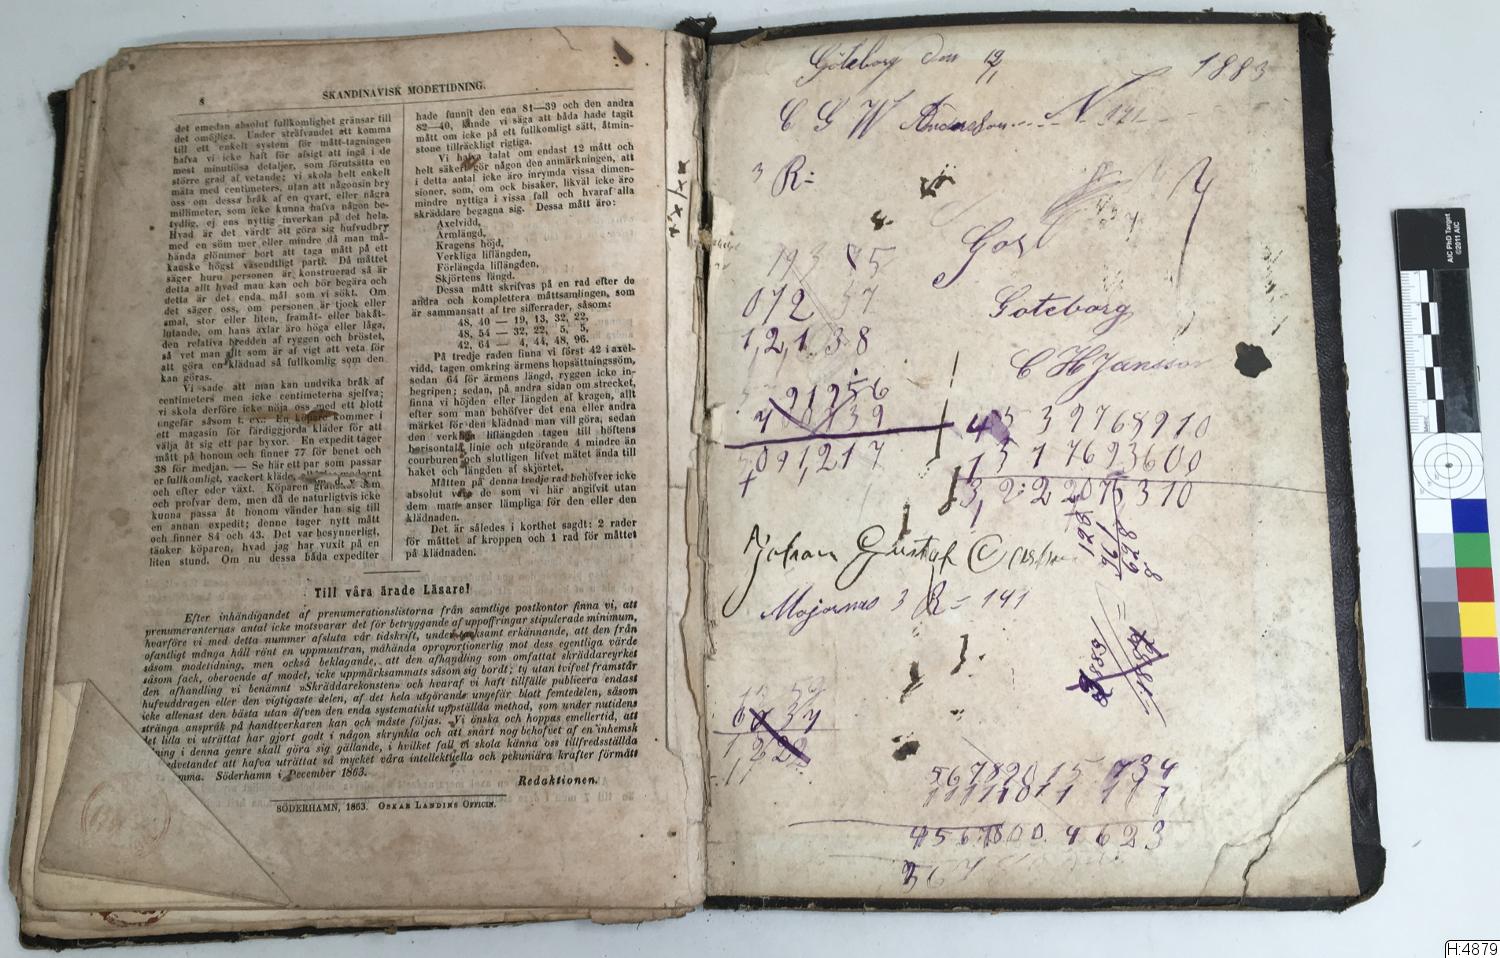 8
SKANDINAVISK MODETIDNING.
det emedan absolut fullkomlighet gränsar till
det omöjliga. Under sträfvandet att komma
till ett enkelt system för mått-tagningen
hafva vi icke haft för afsigt att ingå i de
mest minutiösa detaljer, som förutsätta en
större grad af vetande; vi skola helt enkelt
mäta med centimeters, utan att någonsin bry
oss om dessa bråk af en qvart, eller några
millimeter, som icke kunna hafva någon be-
tydlig, ej ens nyttig inverkan på det hela.
Hvad är det värdt att göra sig hufvudbry
med en söm mer eller mindre då man må-
hända glömmer bort att taga mått på ett
kanske högst väsendtligt parti. Då måttet
säger huru personen är konstruerad så är
detta allt hvad man kan och bör begära och
detta är det enda mål som vi sökt. Om
det säger oss, om personen är tjock eller
smal, stor eller liten, framåt- eller bakåt-
lutande, om hans axlar äro höga eller låga,
den relativa bredden af ryggen och bröstet,
så vet man allt som är af vigt att veta för
att göra en klädnad så fullkomlig som den
kan göras.
Vi sade att man kan undvika bråk af
centimeters men icke centimeterna sjelfva;
vi skola derföre icke nöja oss med ett blott
ungefär såsom t. ex.: En köpare kommer i
ett magasin för färdiggjorda kläder för att
välja åt sig ett par byxor. En expedit tager
mått på honom och finner 77 för benet och
38 för medjan. — Se här ett par som passar
er fullkomligt, vackert kläde,
och efter eder växt. Köparen granskar dem
och profvar dem, men då de naturligtvis icke
kunna passa åt honom vänder han sig till
en annan expedit; denne tager nytt mått
och finner 84 och 43. Det var besynnerligt,
tänker köparen, hvad jag har vuxit på en
liten stund. Om nu dessa båda expediter
hade funnit den ena 81—39 och den andra
82—40, kunde vi säga att båda hade tagit
mått om icke på ett fullkomligt sätt, åtmin-
stone tillräckligt rigtiga.
Vi hafva talat om endast 12 mått och
helt säkert gör någon den anmärkningen, att
i detta antal icke äro inrymda vissa dimen-
sioner, som, om ock bisaker, likväl icke äro
mindre nyttiga i vissa fall och hvaraf alla
skräddare begagna sig. Dessa mått äro:
Axelvidd,
Armlängd,
Kragens höjd,
Verkliga liflängden,
Förlängda liflängden,
Skjörtens längd.
Dessa mått skrifvas på en rad efter de
andra och komplettera måttsamlingen, som
är sammansatt af tre sifferrader, såsom:
48, 40 — 19, 13, 32, 22,
48, 54 — 32, 22, 5, 5,
42, 64 — 4, 44, 48, 96.
På tredje raden finna vi först 42 i axel-
vidd, tagen omkring ärmens hopsättningssöm,
sedan 64 för ärmens längd, ryggen icke in-
begripen; sedan, på andra sidan om strecket,
finna vi höjden eller längden af kragen, allt
efter som man behöfver det ena eller andra
märket för den klädnad man vill göra, sedan
den verkliga liflängden tagen till höftens
horisontala linie och utgörande 4 mindre än
courburen och slutligen lifvet mätet ända till
haket och längden af skjörtet.
Måtten på denna tredje rad behöfver icke
absolut vara de som vi här angifvit utan
dem man anser lämpliga för den eller den
klädnaden.
Det är således i korthet sagdt: 2 rader
för måttet af kroppen och 1 rad för måttet
på klädnaden.
Till våra ärade Läsare!
Efter inhändigandet af prenumerationslistorna från samtlige postkontor finna vi, att
prenumeranternas antal icke motsvarar det för betryggande af uppoffringar stipulerade minimum,
hvarföre vi med detta nummer afsluta vår tidskrift, under tacksamt erkännande, att den från
ofantligt många håll rönt en uppmuntran, måhända oproportionerlig mot dess egentliga värde
såsom modetidning, men också beklagande, att den afhandling som omfattat skrädderyrket
såsom fack, oberoende af modet, icke uppmärksammats såsom sig bordt; ty utan tvifvel framstår
den afhandling vi benämnt »Skräddarekonsten» och hvaraf vi haft tillfälle publicera endast
hufvuddragen eller den vigtigaste delen, af det hela utgörande ungefär blott femtedelen, såsom
icke allenast den bästa utan äfven den enda systematiskt uppställda method, som under nutidens
stränga anspråk på handtverkaren kan och måste följas. Vi önska och hoppas emellertid, att
det lilla vi uträttat har gjort godt i någon skrynkla och att snart nog behofvet af en inhemsk
ning i denna genre skall göra sig gällande, i hvilket fall vi skola känna oss tillfredsställda
edvetandet att hafva uträttat så mycket våra intellektuella och pekuniära krafter förmått
amma. Söderhamn i December 1863.
Redaktionen.
SÖDERHAMN, 1863. OSKAR LANDINS OFFICIN.
Göteborg den 12/1 1883
C G W Andersson N 141
3 R:
Gos
19 75
072 57
1,2,1 38
Göteborg
C H Jansson
91256
139
091,217
45 39768910
13 17693600
3,2:22075310
128
961
628
8
Johan Gustaf
Majornas 3 R = 141
1889
567892015 734
4567800 4623
567
AIC PhD Target
©2011 AIC
H:4879